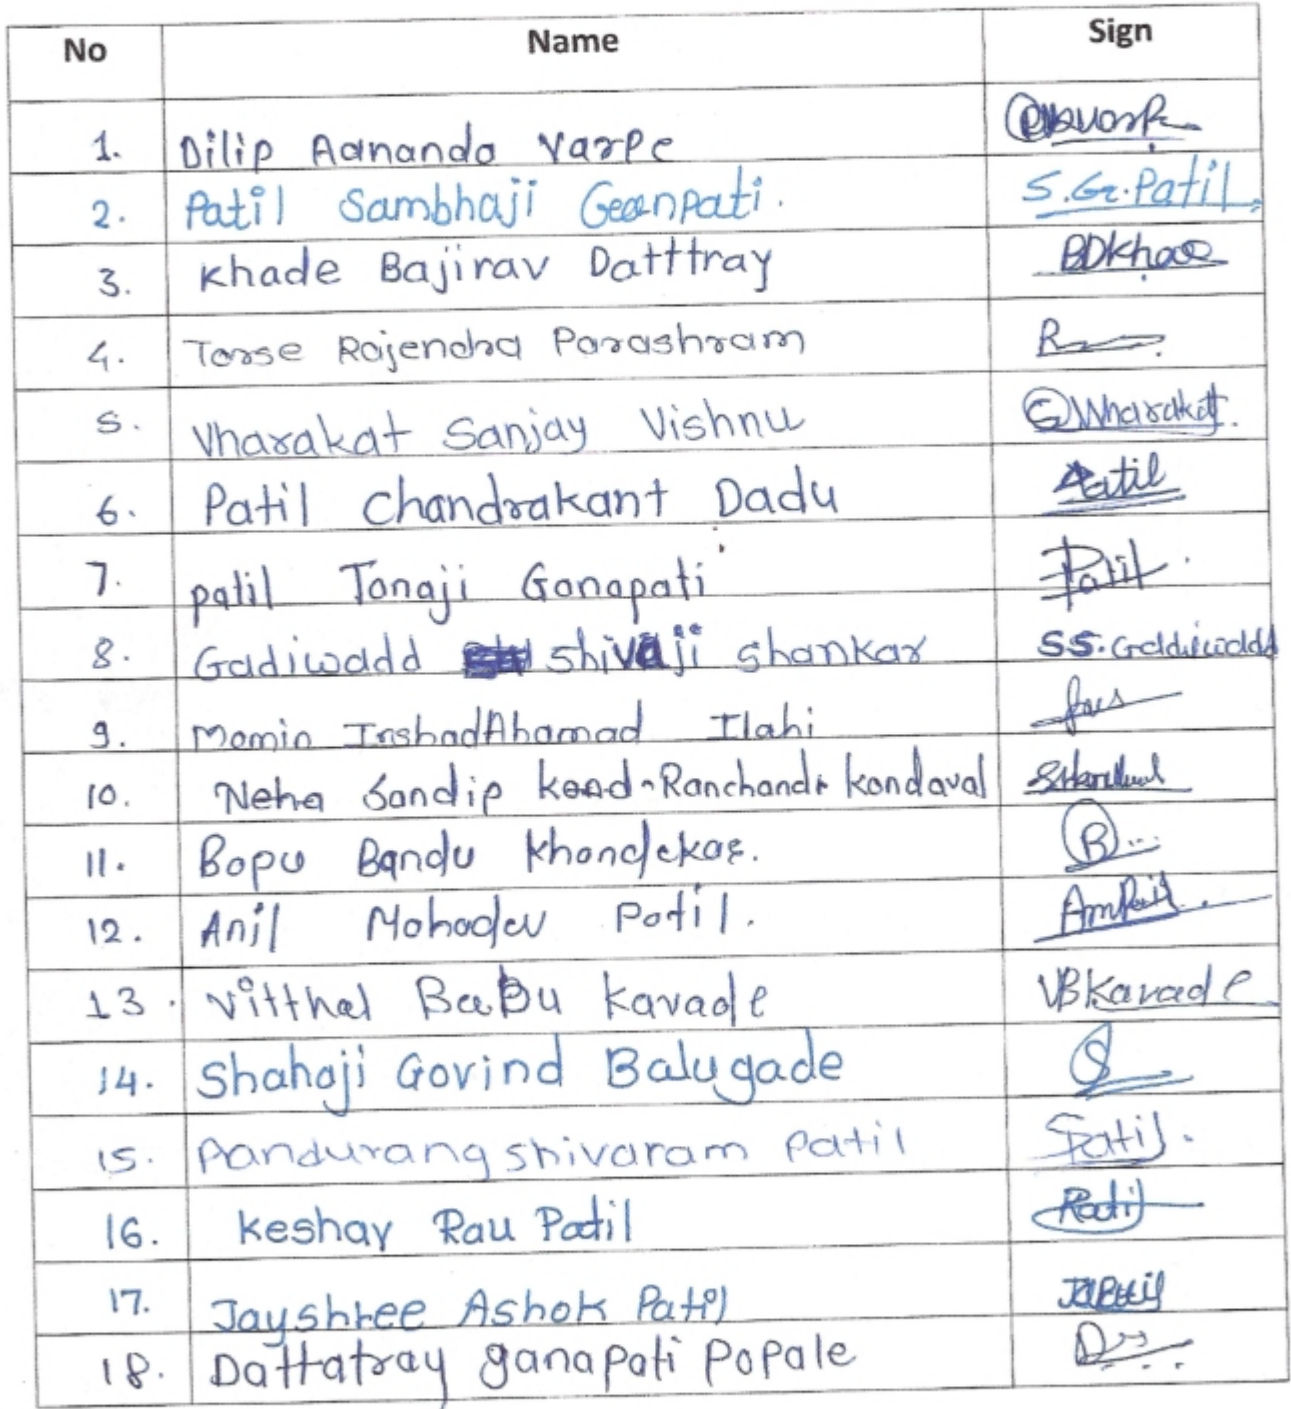 No Name Sign
1. Dilip Aananda Varpe
2. Patil Sambhaji Ganpati. S.G.Patil
3. Khade Bajirav Datttray BDKhade
4. Torse Rajendra Parashram R
5. Vharakat Sanjay Vishnu Wharakat.
6. Patil Chandrakant Dadu Patil
7. patil Tanaji Ganapati Patil
8. Gadiwadd shivaji shankar S.S.Gaddiwadd
9. Momin InshadAhamad Ilahi
10. Neha Sandip Ranchandr kandaval
11. Bapu Bandu Khandekar. B
12. Anil Mahadev Patil. AmPatil
13. Vitthal BaBu Kavade VBKavade
14. Shahaji Govind Balugade S
15. Pandurang shivaram Patil Patil.
16. keshav Rau Patil Patil
17. Jayshree Ashok Patil JAPatil
18. Dattatray ganapati Popale D